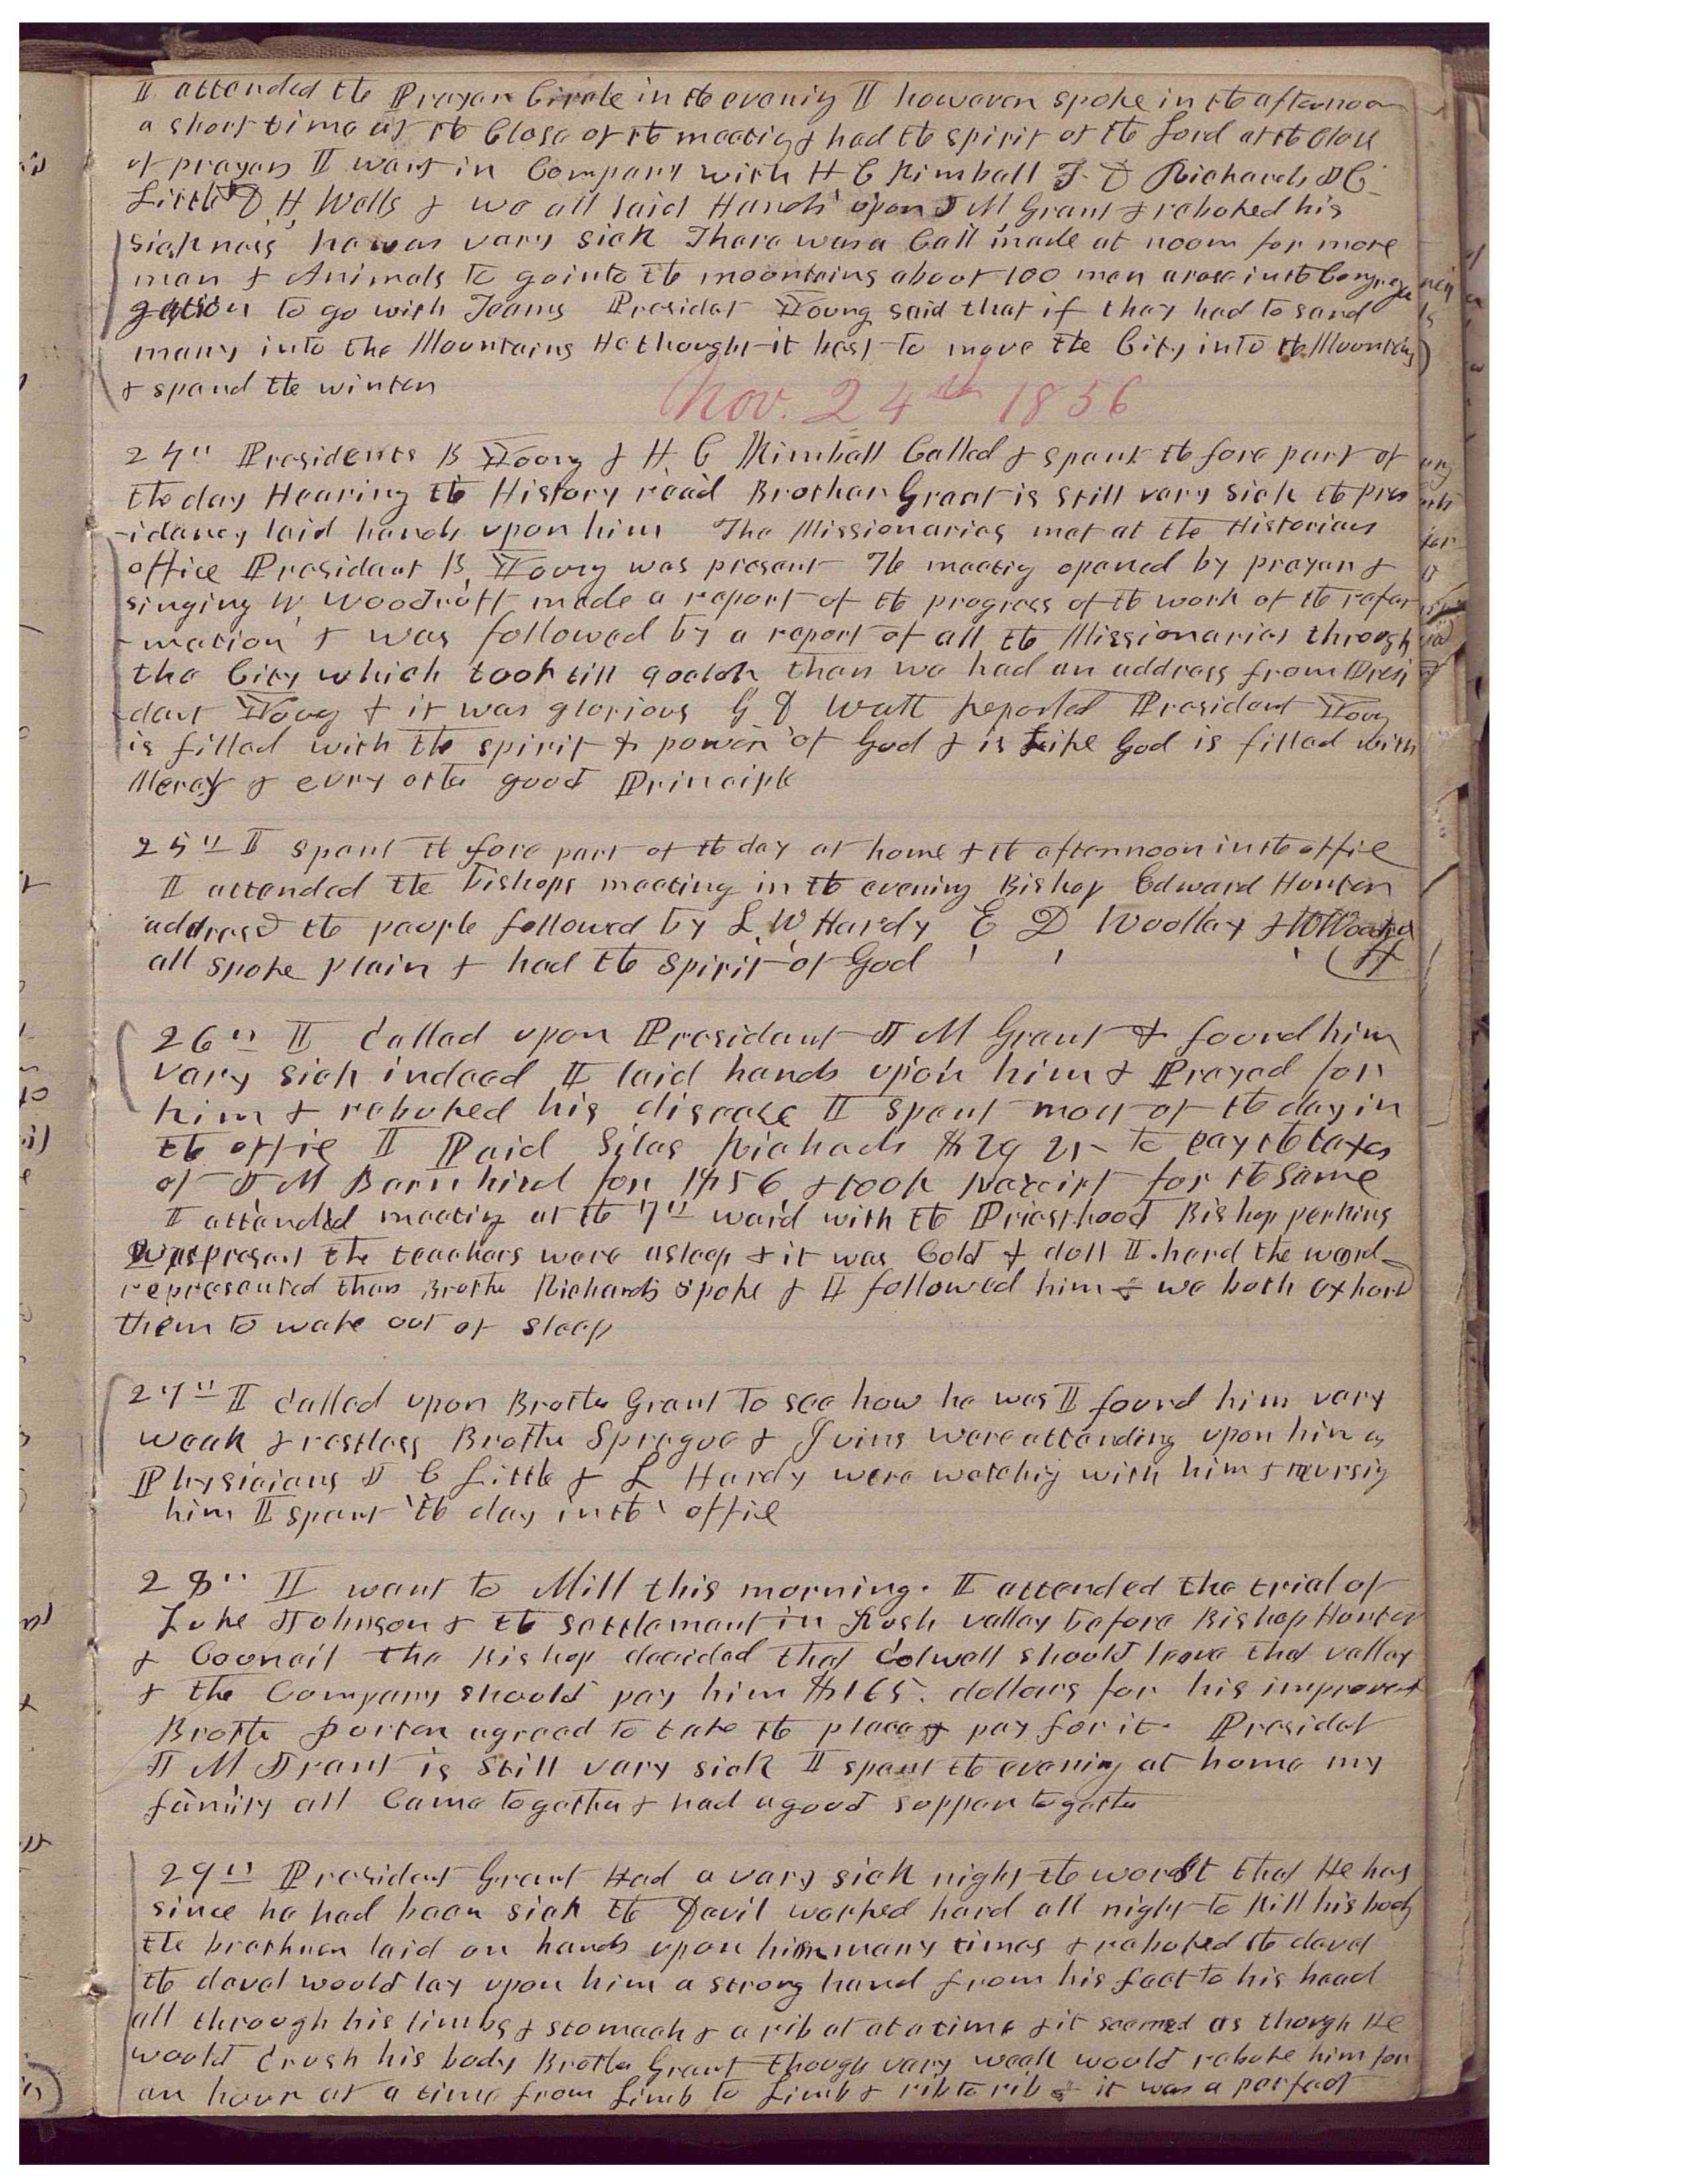 I attended the Prayer Circle in the evenig I however spoke in the afternoon
a short time at the Close of the meetig & had the spirit of the Lord at the close
of prayers I went in Company with H C Kimball F. D Richards
Little D H Wells & we all laid Hands upon J M Grant & rebuked his
sickness he was very sick There was a Call made at noom for more
men & Animals to go into the mountains about 100 men arose in the Congrega
gation to go with Teams Presidet Young said that if they had to send
many into the Mountains He thought it best to move the City into the Mountains
& spend the winter
Nov. 24th 1856
24" Presidents B Young & H. C Kimball Called & spent the fore part of
the day Hearing the History read Brother Grant is still very sick the pres
-idency laid hands upon him The Missionaries met at the Historians
office President B. Young was present The meetig opened by prayer &
singing W. Woodruff made a report of the progress of the work of the refor
-mation & was followed by a report of all the Missionaries through
the City which took till 9 oclok then we had an address from Presi
dent Young & it was glorious G D Watt reported President Young
is filled with the spirit & power of God & is Like God is filled with
Mercy & evry othe good Principle
25" I spent the fore part of the day at home & the afternoon in the offie
I attended the bishops meeting in the evening Bishop Edward Hunter
addresd the people followed by L. W. Hardy E D Woolley & W Woodruff
all spoke plain & had the spirit of God
26" I Called upon President J M Grant & found him
very sick indeed I laid hands upon him & Prayed for
him & rebuked his disease I spent most of the day in
the offie I Paid Silas Richads $29 25 to pay the taxes
of J M Barnhisel for 1856 & took receipt for the same
I attended meetig at the 7" ward with the Priesthood Bishop perkins
was present the teachers were asleep & it was Cold & dull I hard the ward
represented then Brothe Richards spoke & I followed him & we both exhort
them to wake out of sleep
27" I Called upon Brothe Grant to see how he was I found him very
weak & restless Brothe Sprague & Ivins were attending upon him as
Physicians J C Little & L Hardy were watchig with him & nursig
him I spent the day in the offie
28" I went to Mill this morning. I attended the trial of
Luke Johnson & the settlement in Rush valley before Bishop Hunter
& Council the Bishop decided that Colwell should leave that valley
& the Company should pay him $165. dollars for his improvet
Brothe Porter agreed to take the place & pay for it. Presidet
J M Grant is still very sick I spent the evening at home my
family all Came togethe & had a good supper togethe
29" President Grant Had a very sick night the worst that He has
since he had been sick the Devil worked hard all night to Kill his body
the brethren laid on hands upon him many times & rebuked the devel
the devel would lay upon him a strong hand from his feet to his head
all through his limbs & stomach & a rib at at a time & it seemed as though He
would Crush his body Brothe Grant though very weak would rebuke him for
an hour at a time from Limb to Limb & rib to rib & it was a perfect